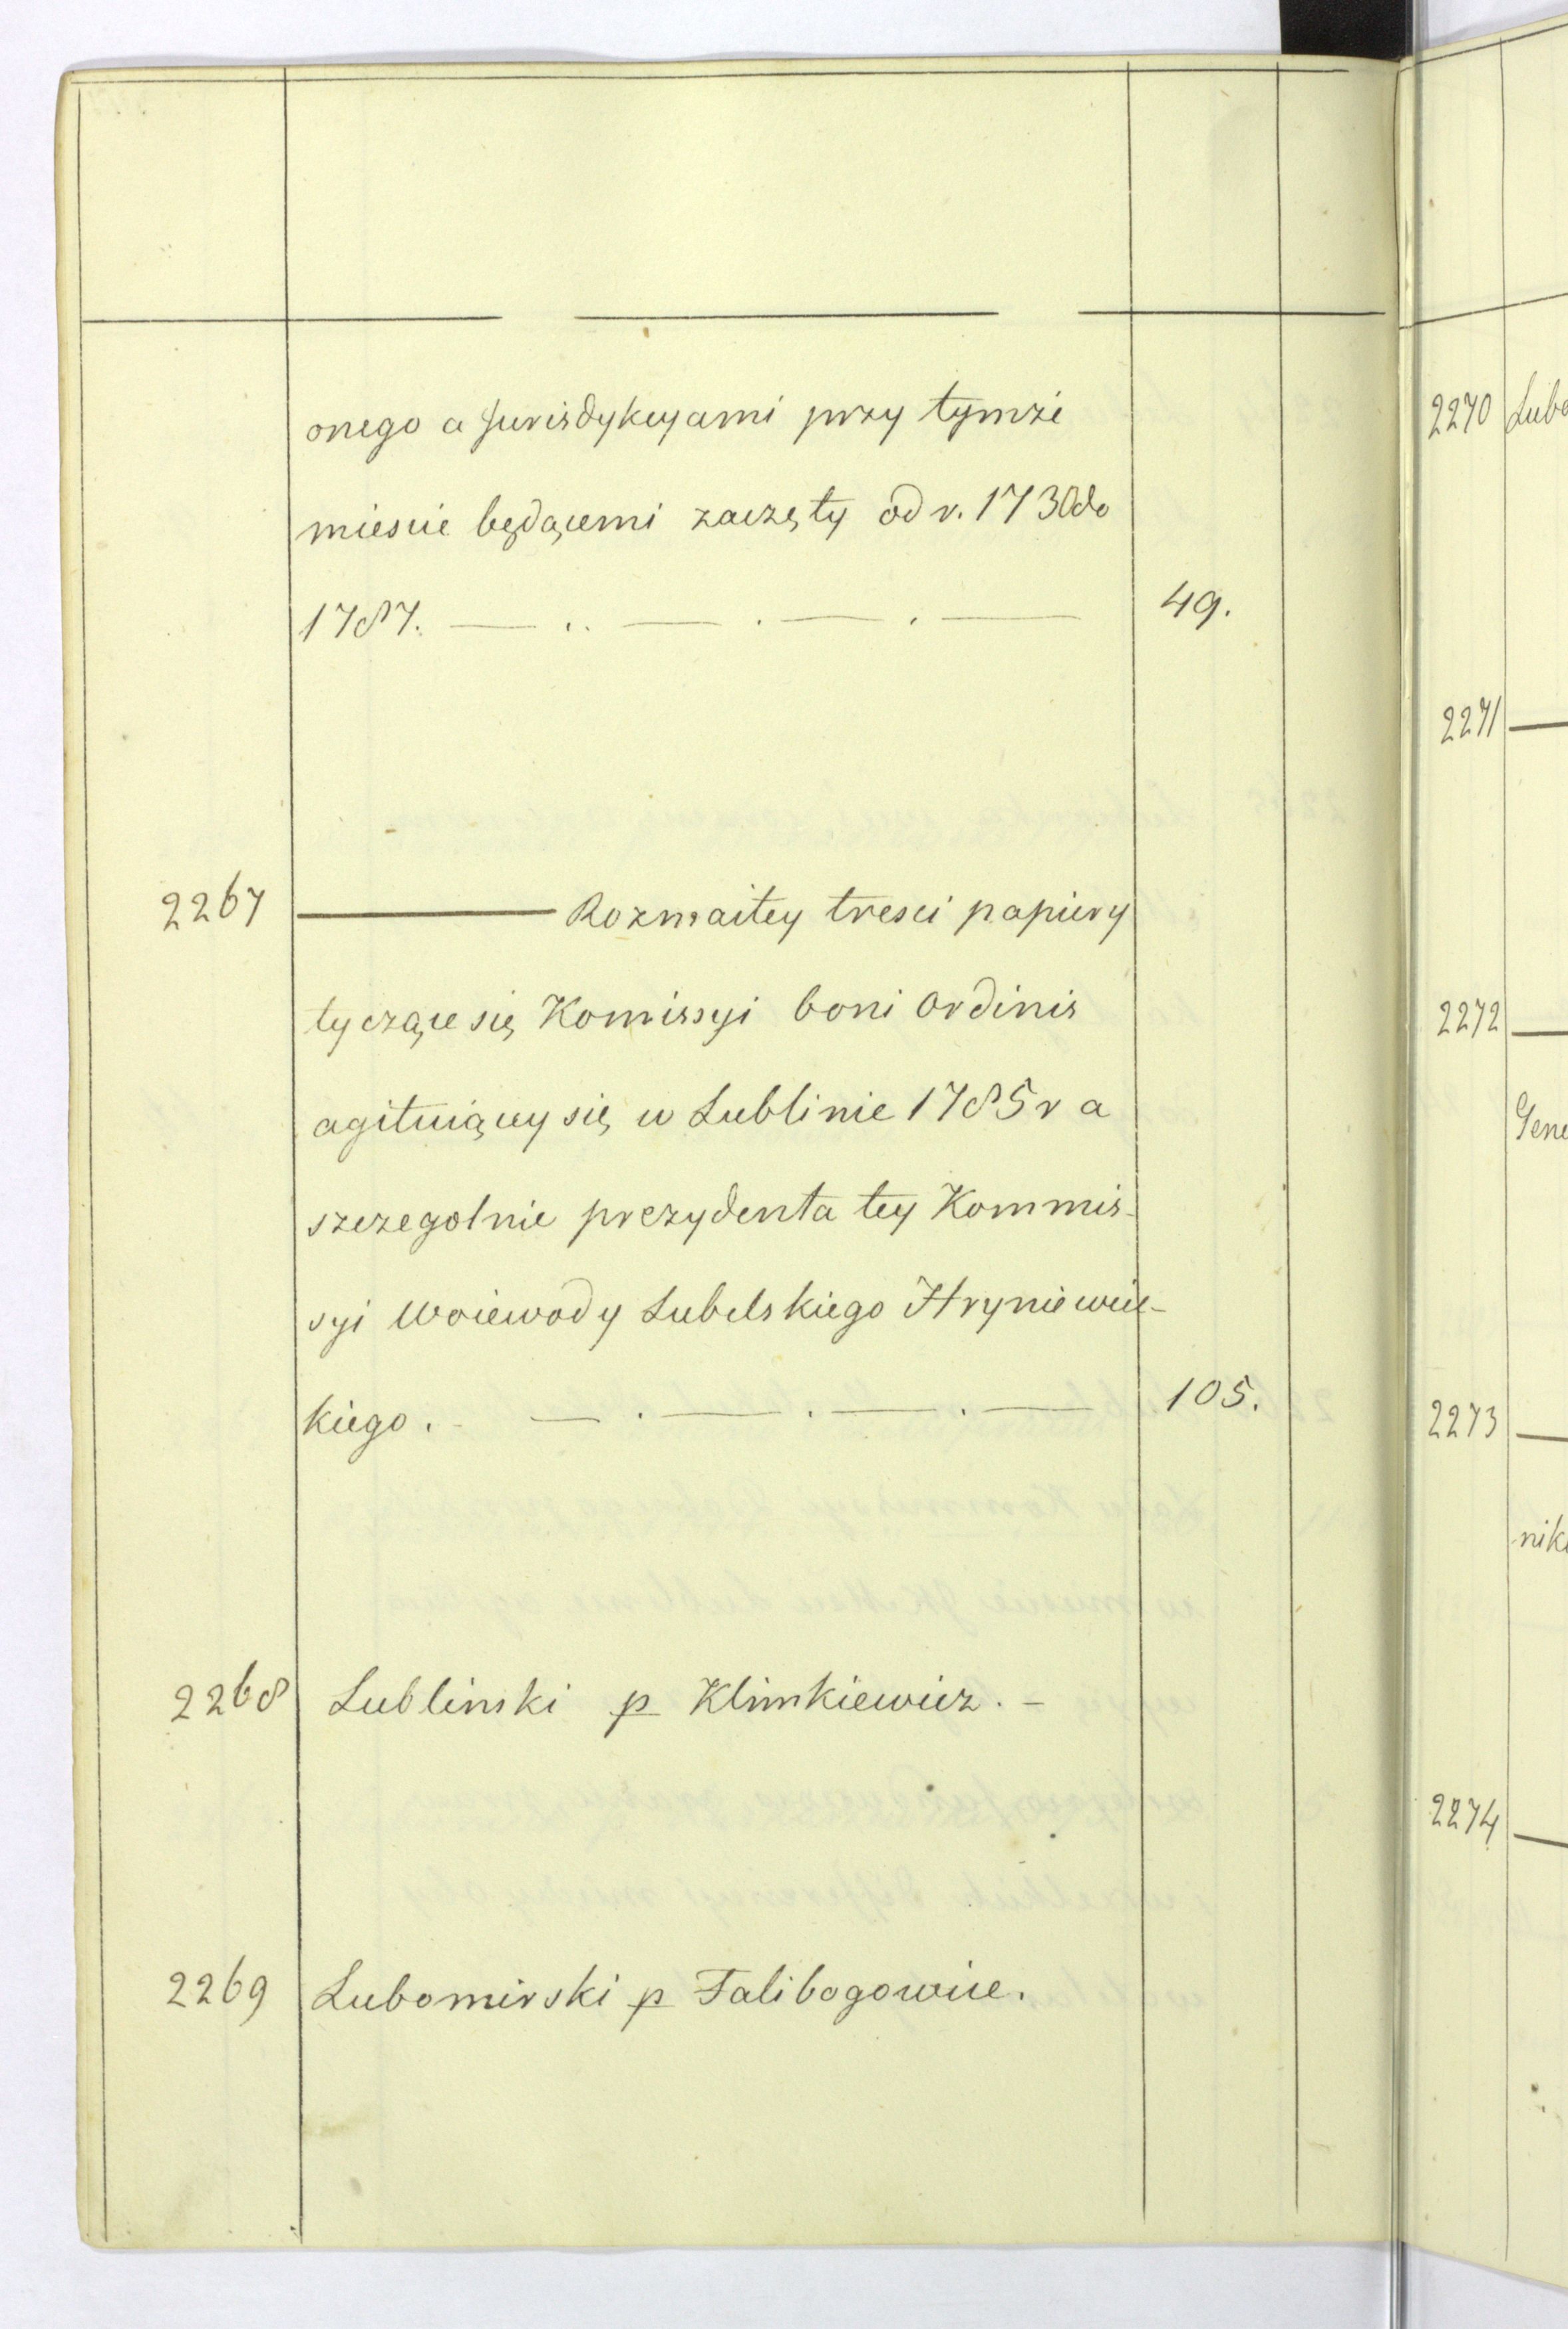 onego a Jurisdykcyami przy tymże
miescie będącemi zaczęty od r. 1730 do
1787. — . . — . — . — 49.
2267 ——— Rozmaitey tresci papiery
tyczące się Komissyi boni Ordinis
agituiącey się w Lublinie 1785 r a
szczegolnie prezydenta tey Kommis-
syi Woiewody Lubelskiego Hryniewic-
kiego. — . — . — . — 105.
2268 Lublinski p Klimkiewicz. -
2269 Lubomirski p Falibogowice.
2270 Lubo
2271 —
2272 —
Gene
2273 —
nik
2274 —